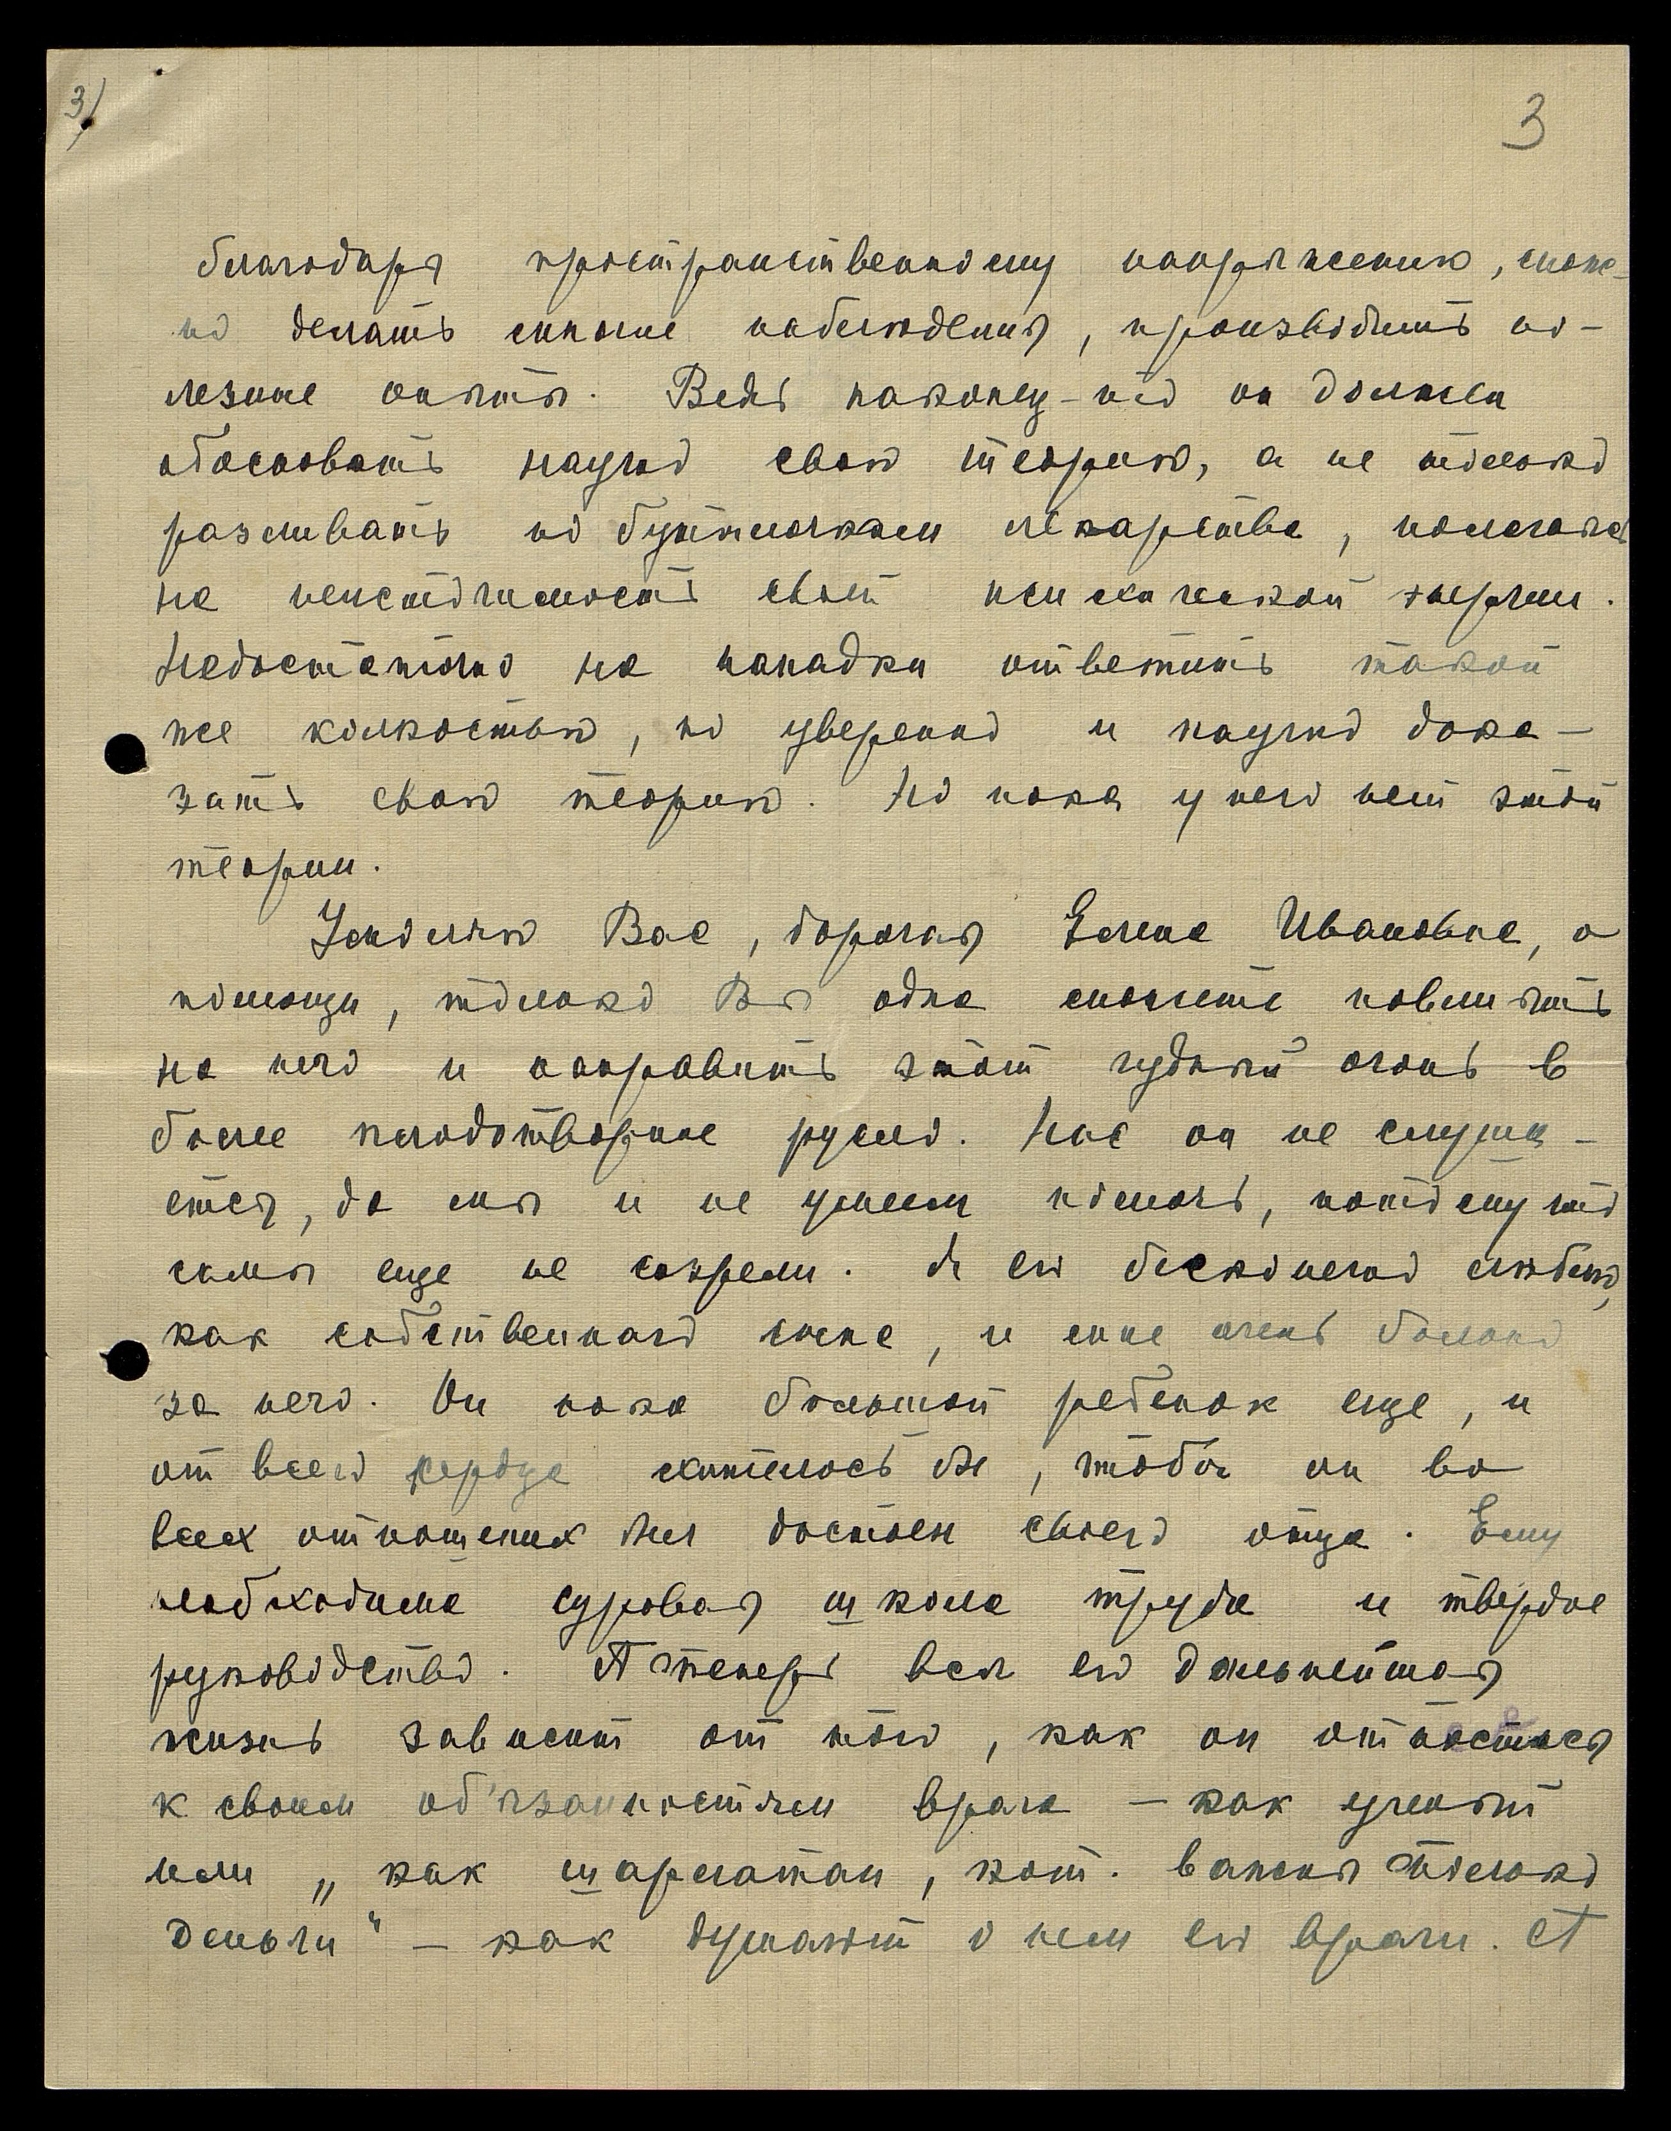 3)
3
благодаря пространственному напряжению, мож-
но делать многие наблюдения, производить по-
лезные опыты. Ведь наконец-то он должен
обосновать научно свою теорию, а не только
разливать по бутылочкам лекарства, полагаясь
на неистощимость своей психической энергии.
Недостаточно на нападки ответить такой
же колкостью, но уверенно и научно дока-
зать свою теорию. Но пока у него нет этой
теории.
Умоляю Вас, дорогая Елена Ивановна, о
помощи, только Вы одна сможете повлиять
на него и направить этот чудный огонь в
более плодотворное русло. Нас он не слуша-
ется, да мы и не умеем помочь, потому что
сами еще не созрели. Я его бесконечно люблю,
как собственного сына, и мне очень больно
за него. Он пока большой ребенок еще, и
от всего сердца хотелось бы, чтобы он во
всех отношениях был достоен своего отца. Ему
необходима суровая школа труда и твердое
руководство. А теперь вся его дальнейшая
жизнь зависит от того, как он отнесется
к своим об'язанностям врача — как ученый
или „как шарлатан, кот. важны только
деньги" — как думают о нем его враги. А